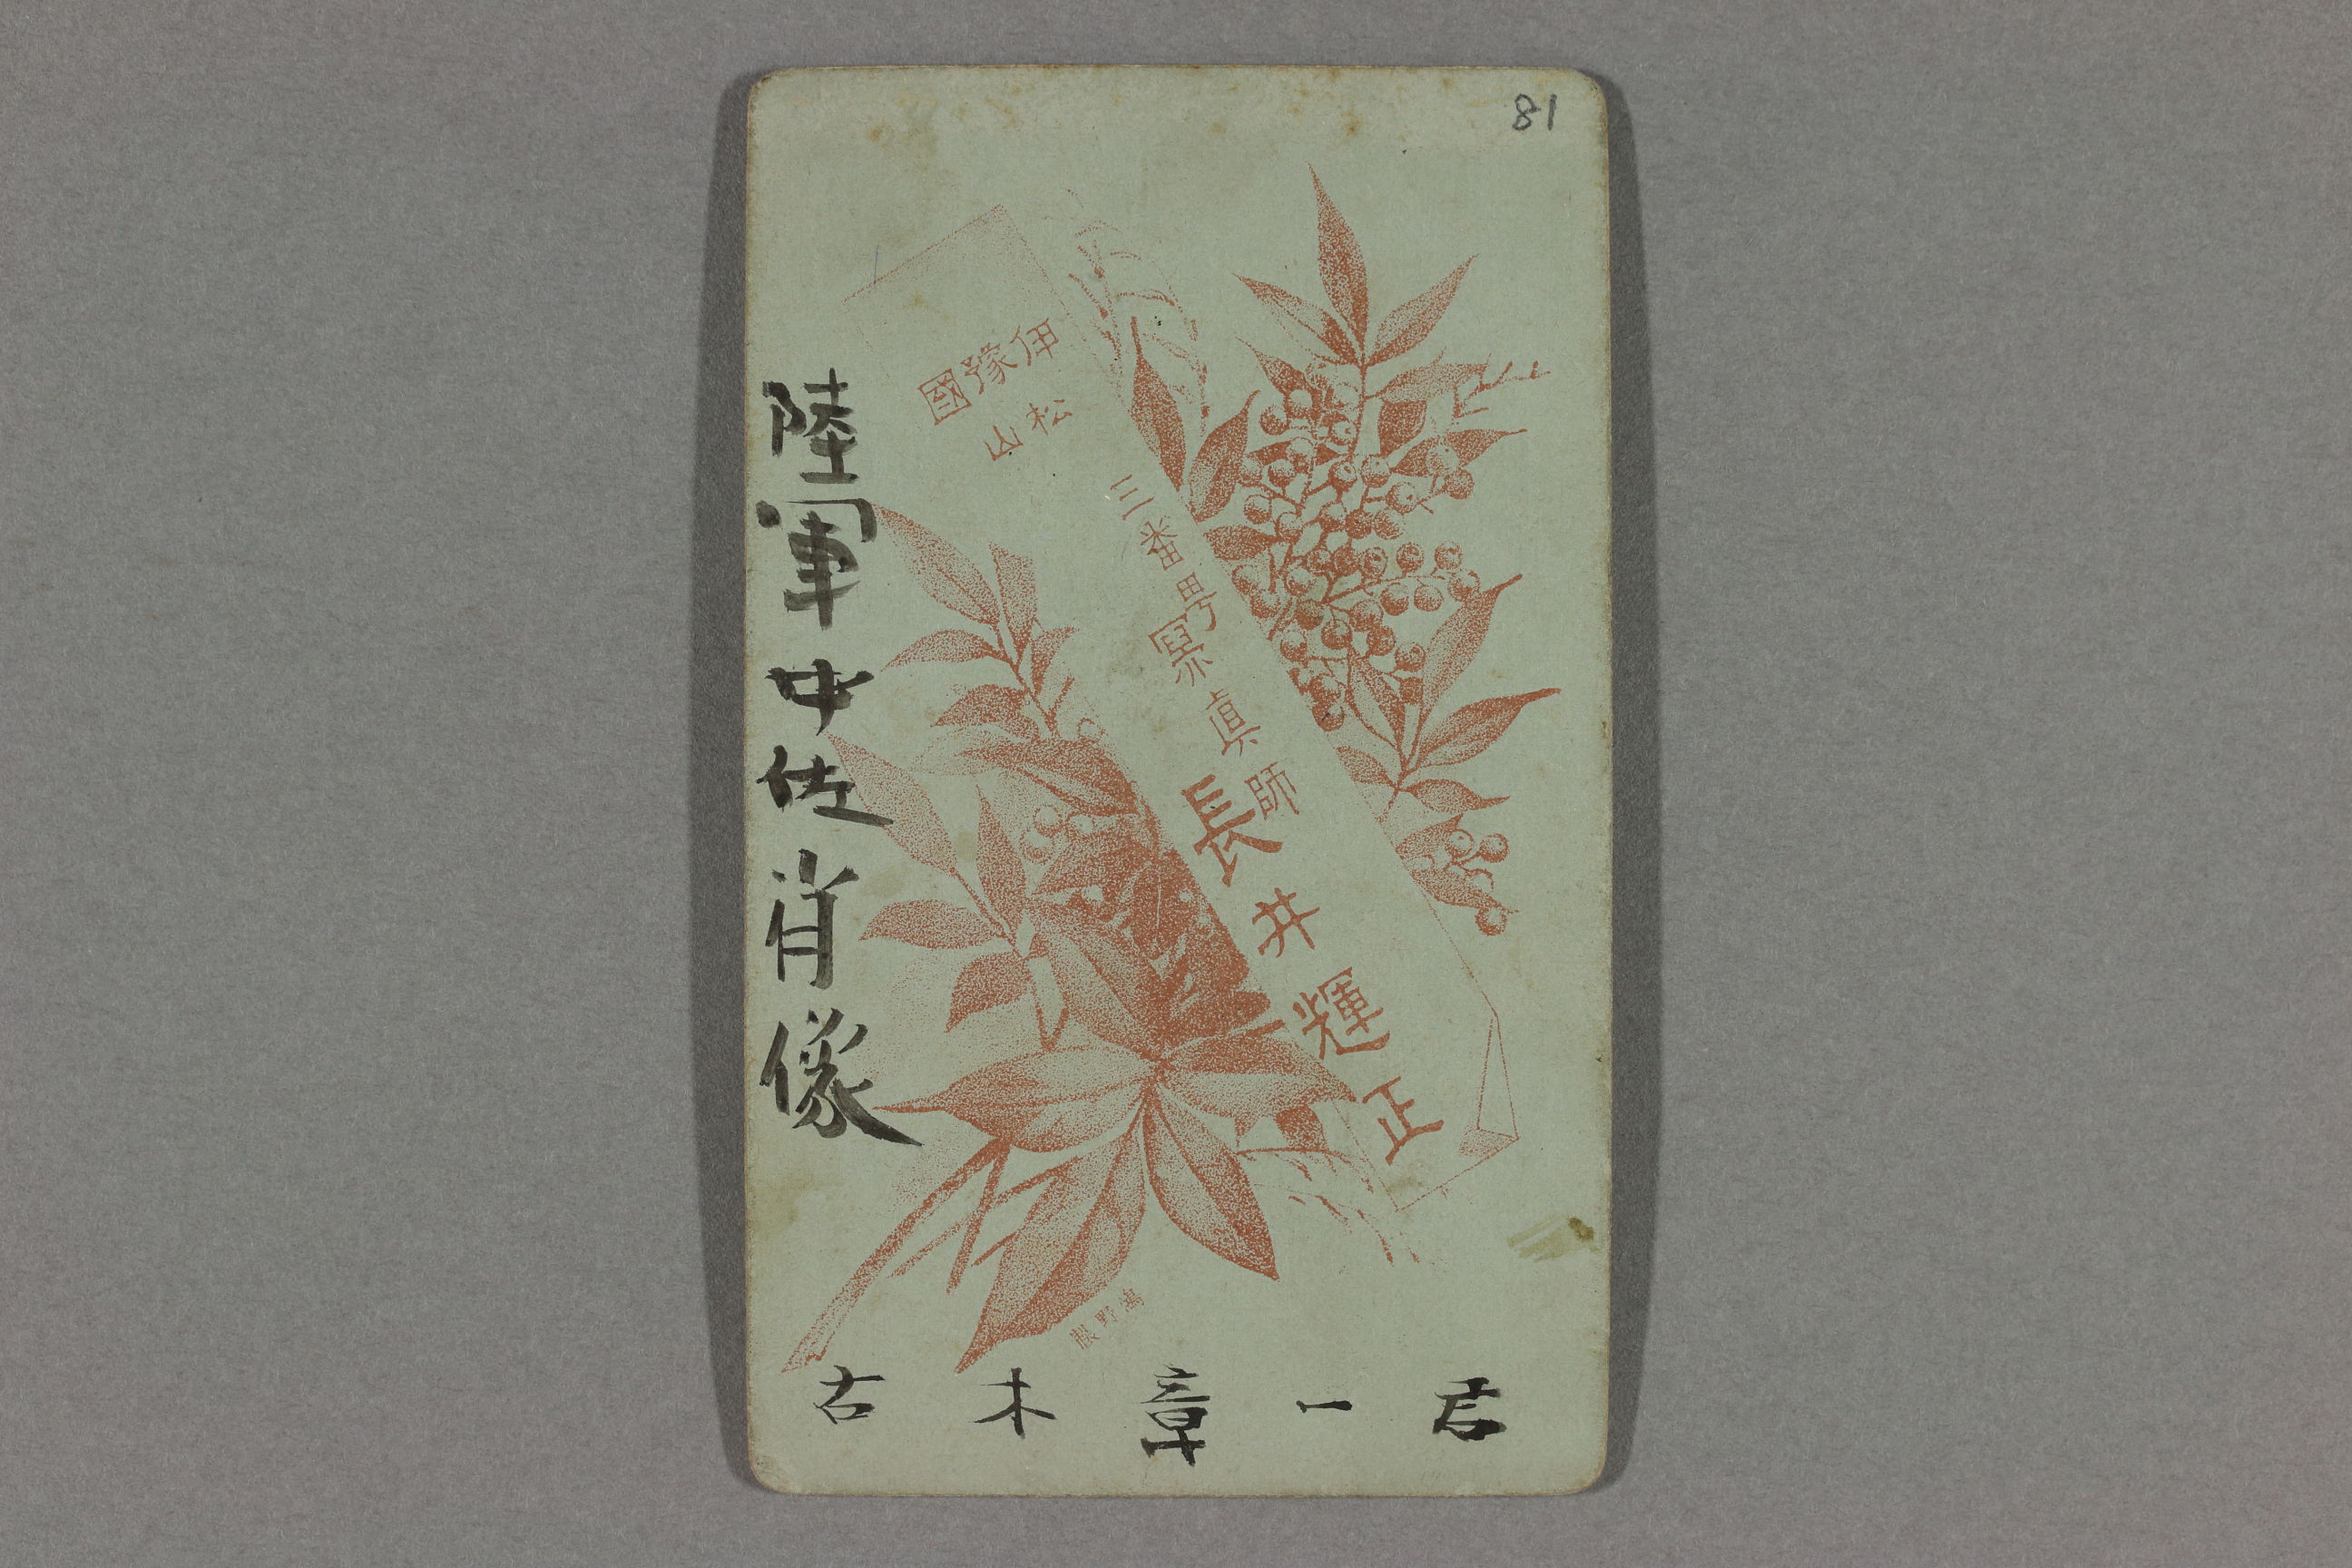 81
伊豫國
松山
三番町
寫真師
長井輝正
陸軍中佐肖像
古木章一君